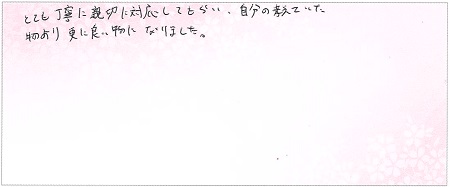 とても丁寧に親切に対応してもらい、自分の考えていた
物より更に良い物になりました。